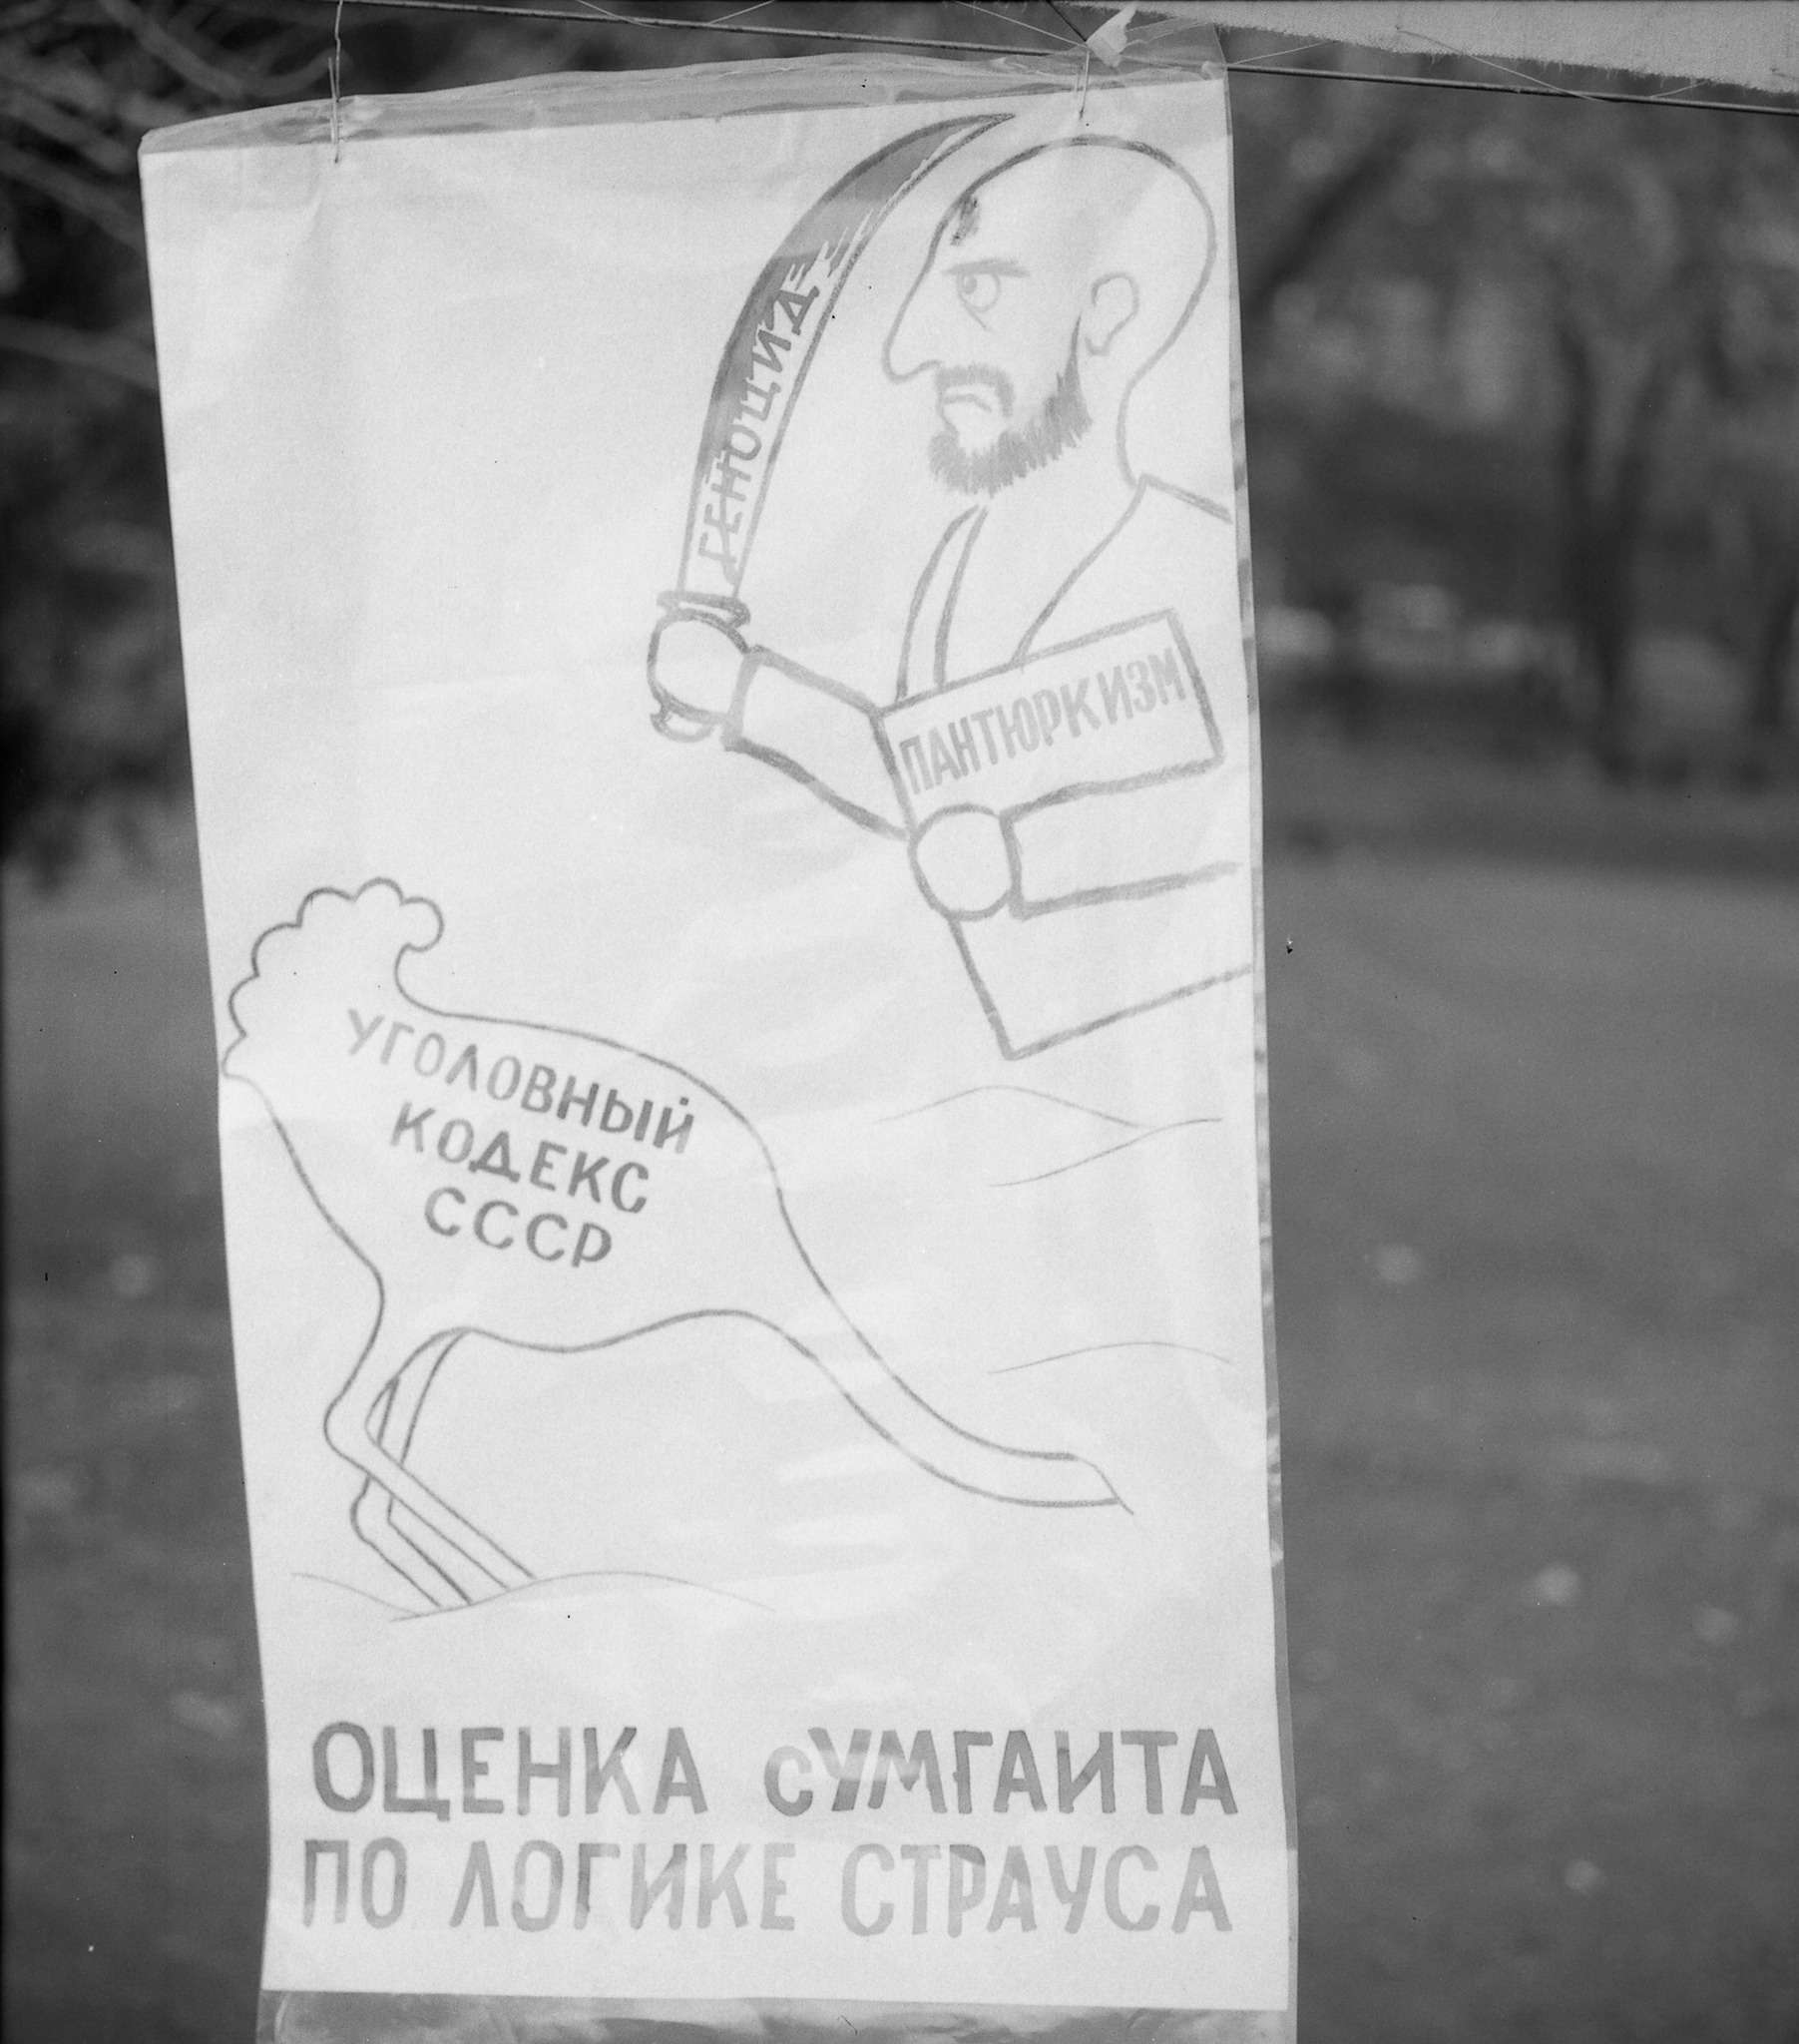 ГЕНОЦИД
ПАНТЮРКИЗМ
УГОЛОВНЫЙ
КОДЕКС
СССР
ОЦЕНКА СУМГАИТА
ПО ЛОГИКЕ СТРАУСА